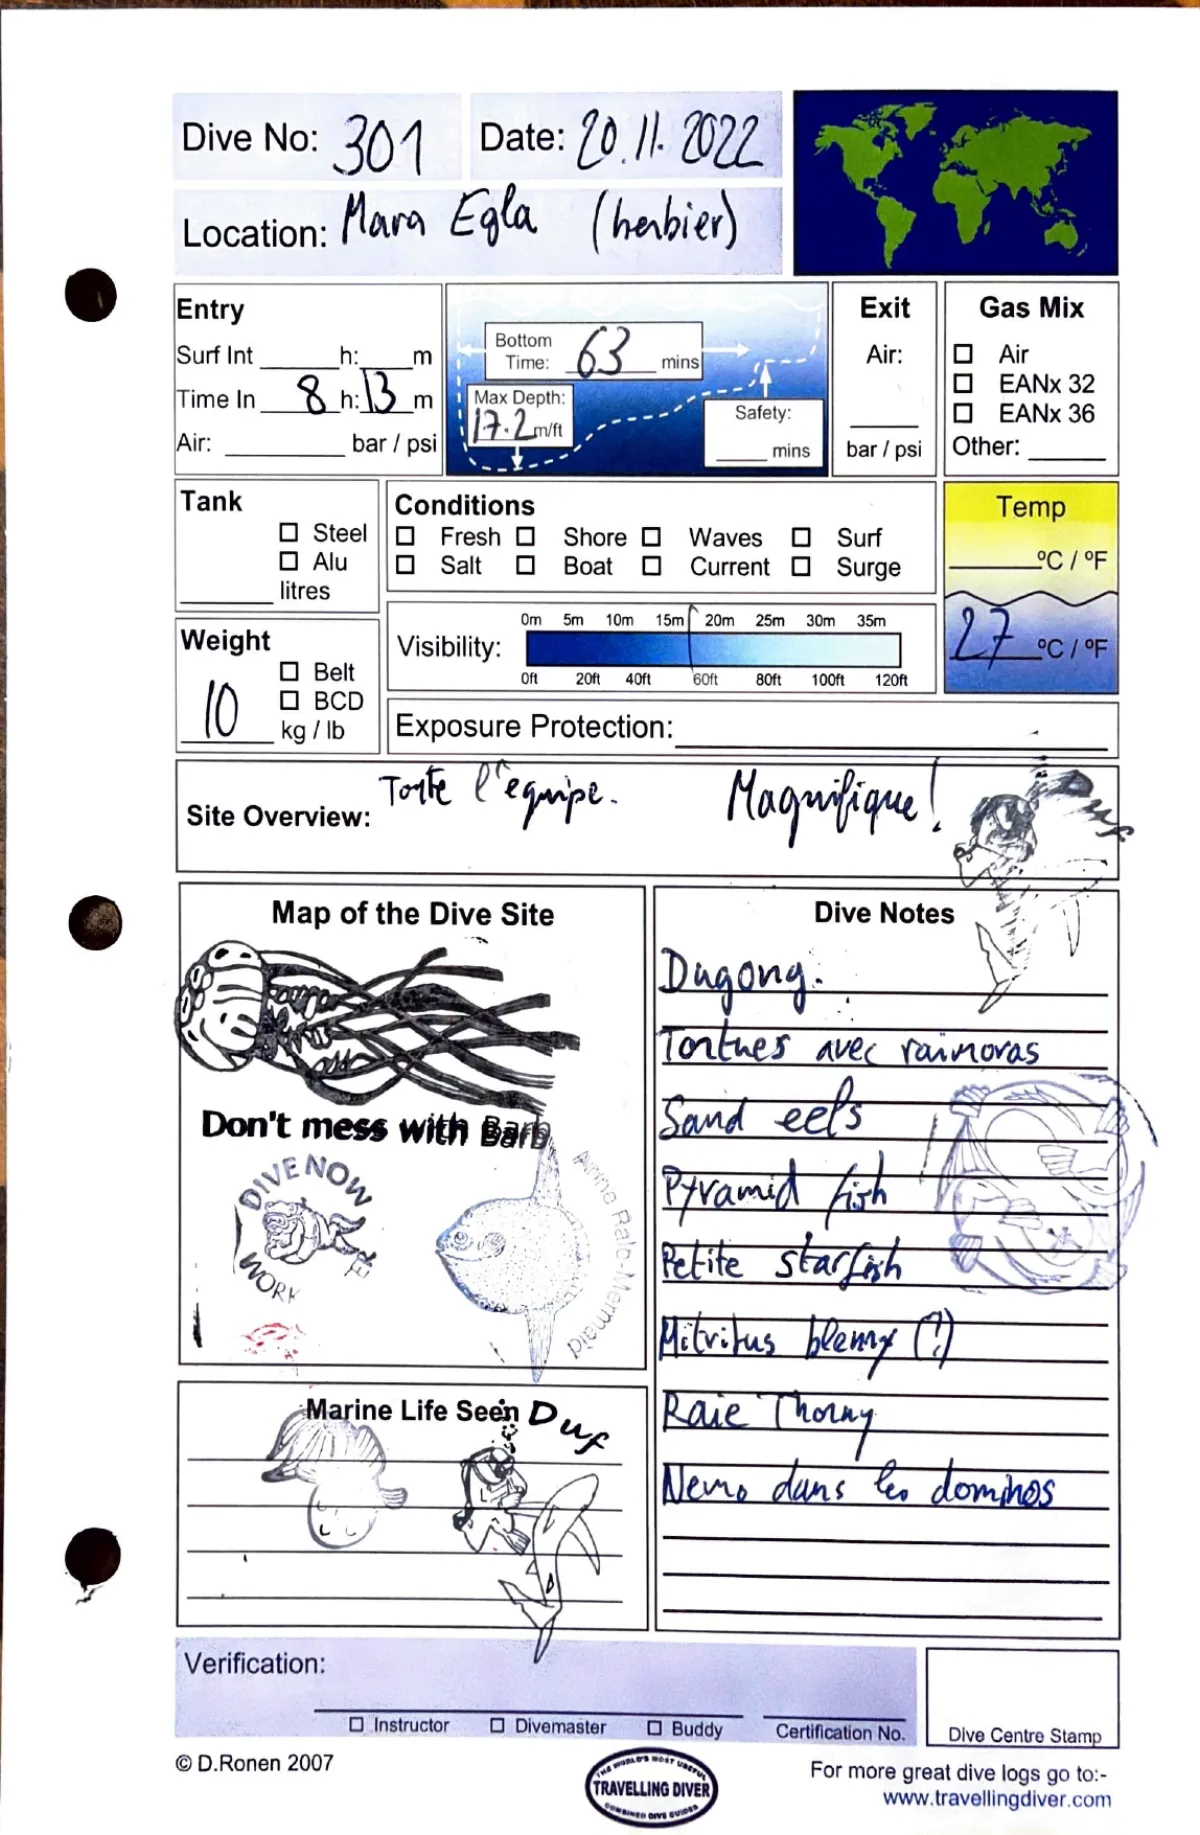 Dive No: 301 Date: 20.11.2022
Location: Mara Egla (herbier)
Entry
Surf Int ____ h: ____ m
Time In 8 h: 13 m
Air: ____ bar / psi
Bottom Time: 63 mins
Max Depth: 17.2 m/ft
Safety: ____ mins
Exit
Air:
____ bar / psi
Gas Mix
Air
EANx 32
EANx 36
Other: ____
Tank
Steel
Alu
litres
Conditions
Fresh Shore Waves Surf
Salt Boat Current Surge
Temp
____ ºC / ºF
27 ºC / ºF
Weight
Belt
BCD
10 kg / lb
0m 5m 10m 15m 20m 25m 30m 35m
Visibility:
0ft 20ft 40ft 60ft 80ft 100ft 120ft
Exposure Protection:
Site Overview: Toute l'equipe. Magnifique!
Duf
Map of the Dive Site
Don't mess with Barb
DIVE NOW
WORK
Marine Life Seen
Duf
Dive Notes
Dugong.
Tortues avec raimoras
Sand eels
Pyramid fish
Petite starfish
Mitvitus blenny (?)
Raie Thorny
Nemo dans les dominos
Verification:
Instructor Divemaster Buddy Certification No.
Dive Centre Stamp
© D.Ronen 2007
THE WORLD'S MOST USEFUL
TRAVELLING DIVER
COMBINED DIVE GUIDES
For more great dive logs go to:-
www.travellingdiver.com